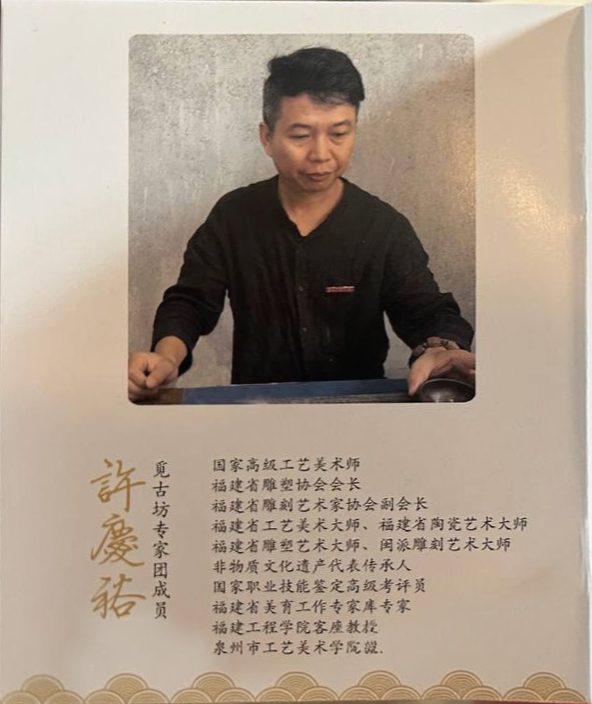 許慶裕
觅古坊专家团成员
国家高级工艺美术师
福建省雕塑协会会长
福建省雕刻艺术家协会副会长
福建省工艺美术大师、福建省陶瓷艺术大师
福建省雕塑艺术大师、闽派雕刻艺术大师
非物质文化遗产代表传承人
国家职业技能鉴定高级考评员
福建省美育工作专家库专家
福建工程学院客座教授
泉州市工艺美术学院